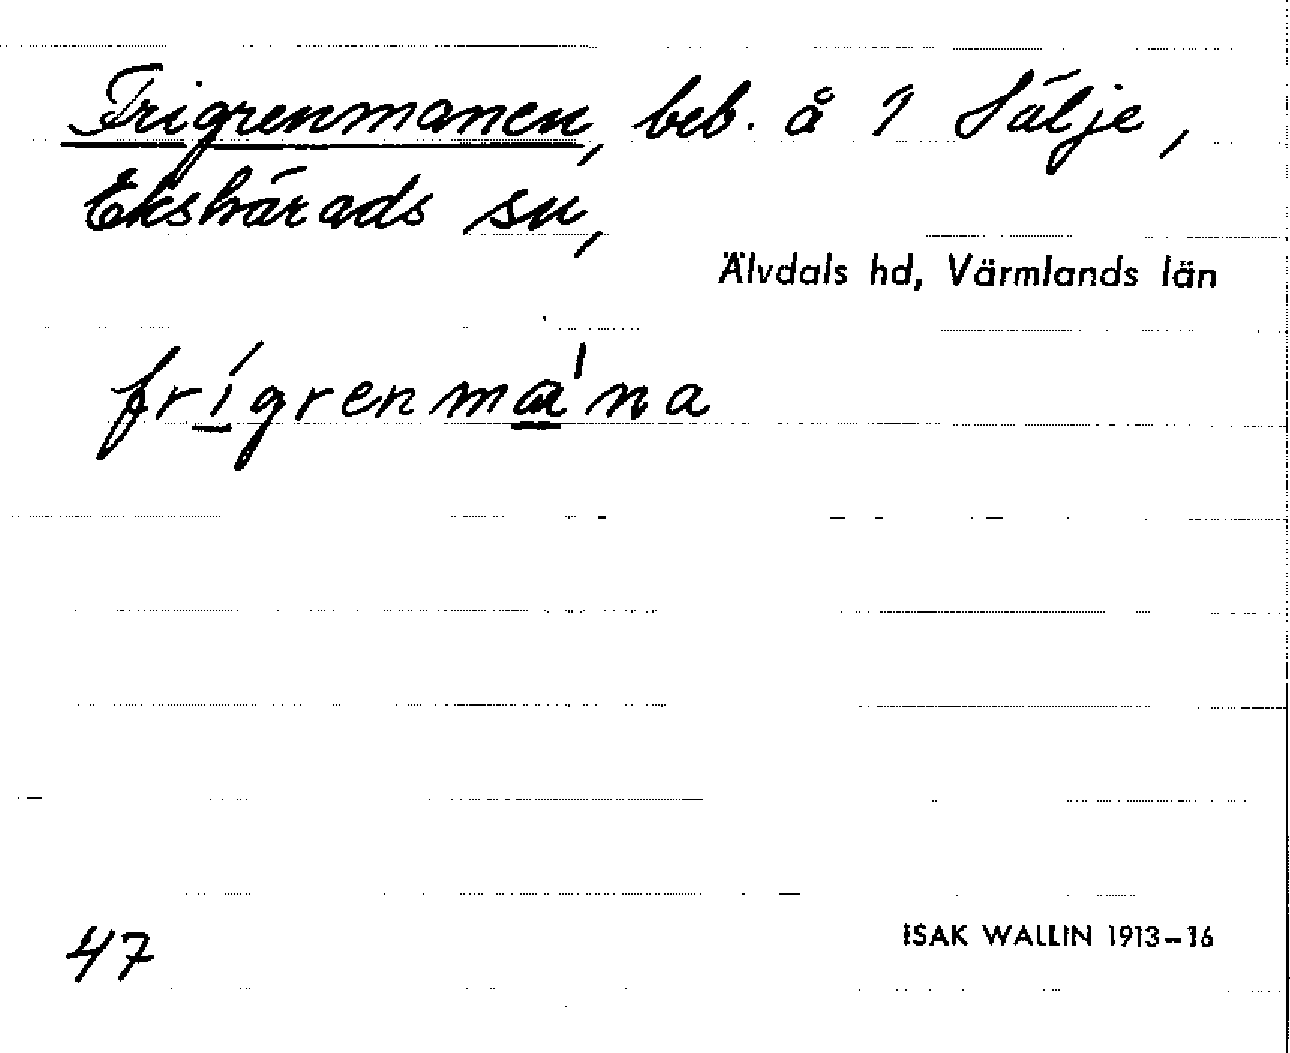 Frigrenmanen, beb. å 1 Sälje,
Ekshärads sn,
Älvdals hd, Värmlands län
frígrenma'na
47
ISAK WALLIN 1913–16